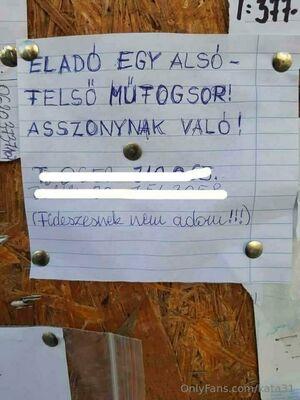 1:377.
ELADÓ EGY ALSÓ-
FELSŐ MŰFOGSOR!
ASSZONYNAK VALÓ!
(Fideszesnek nem adom!!!)
OnlyFans.com/kata31